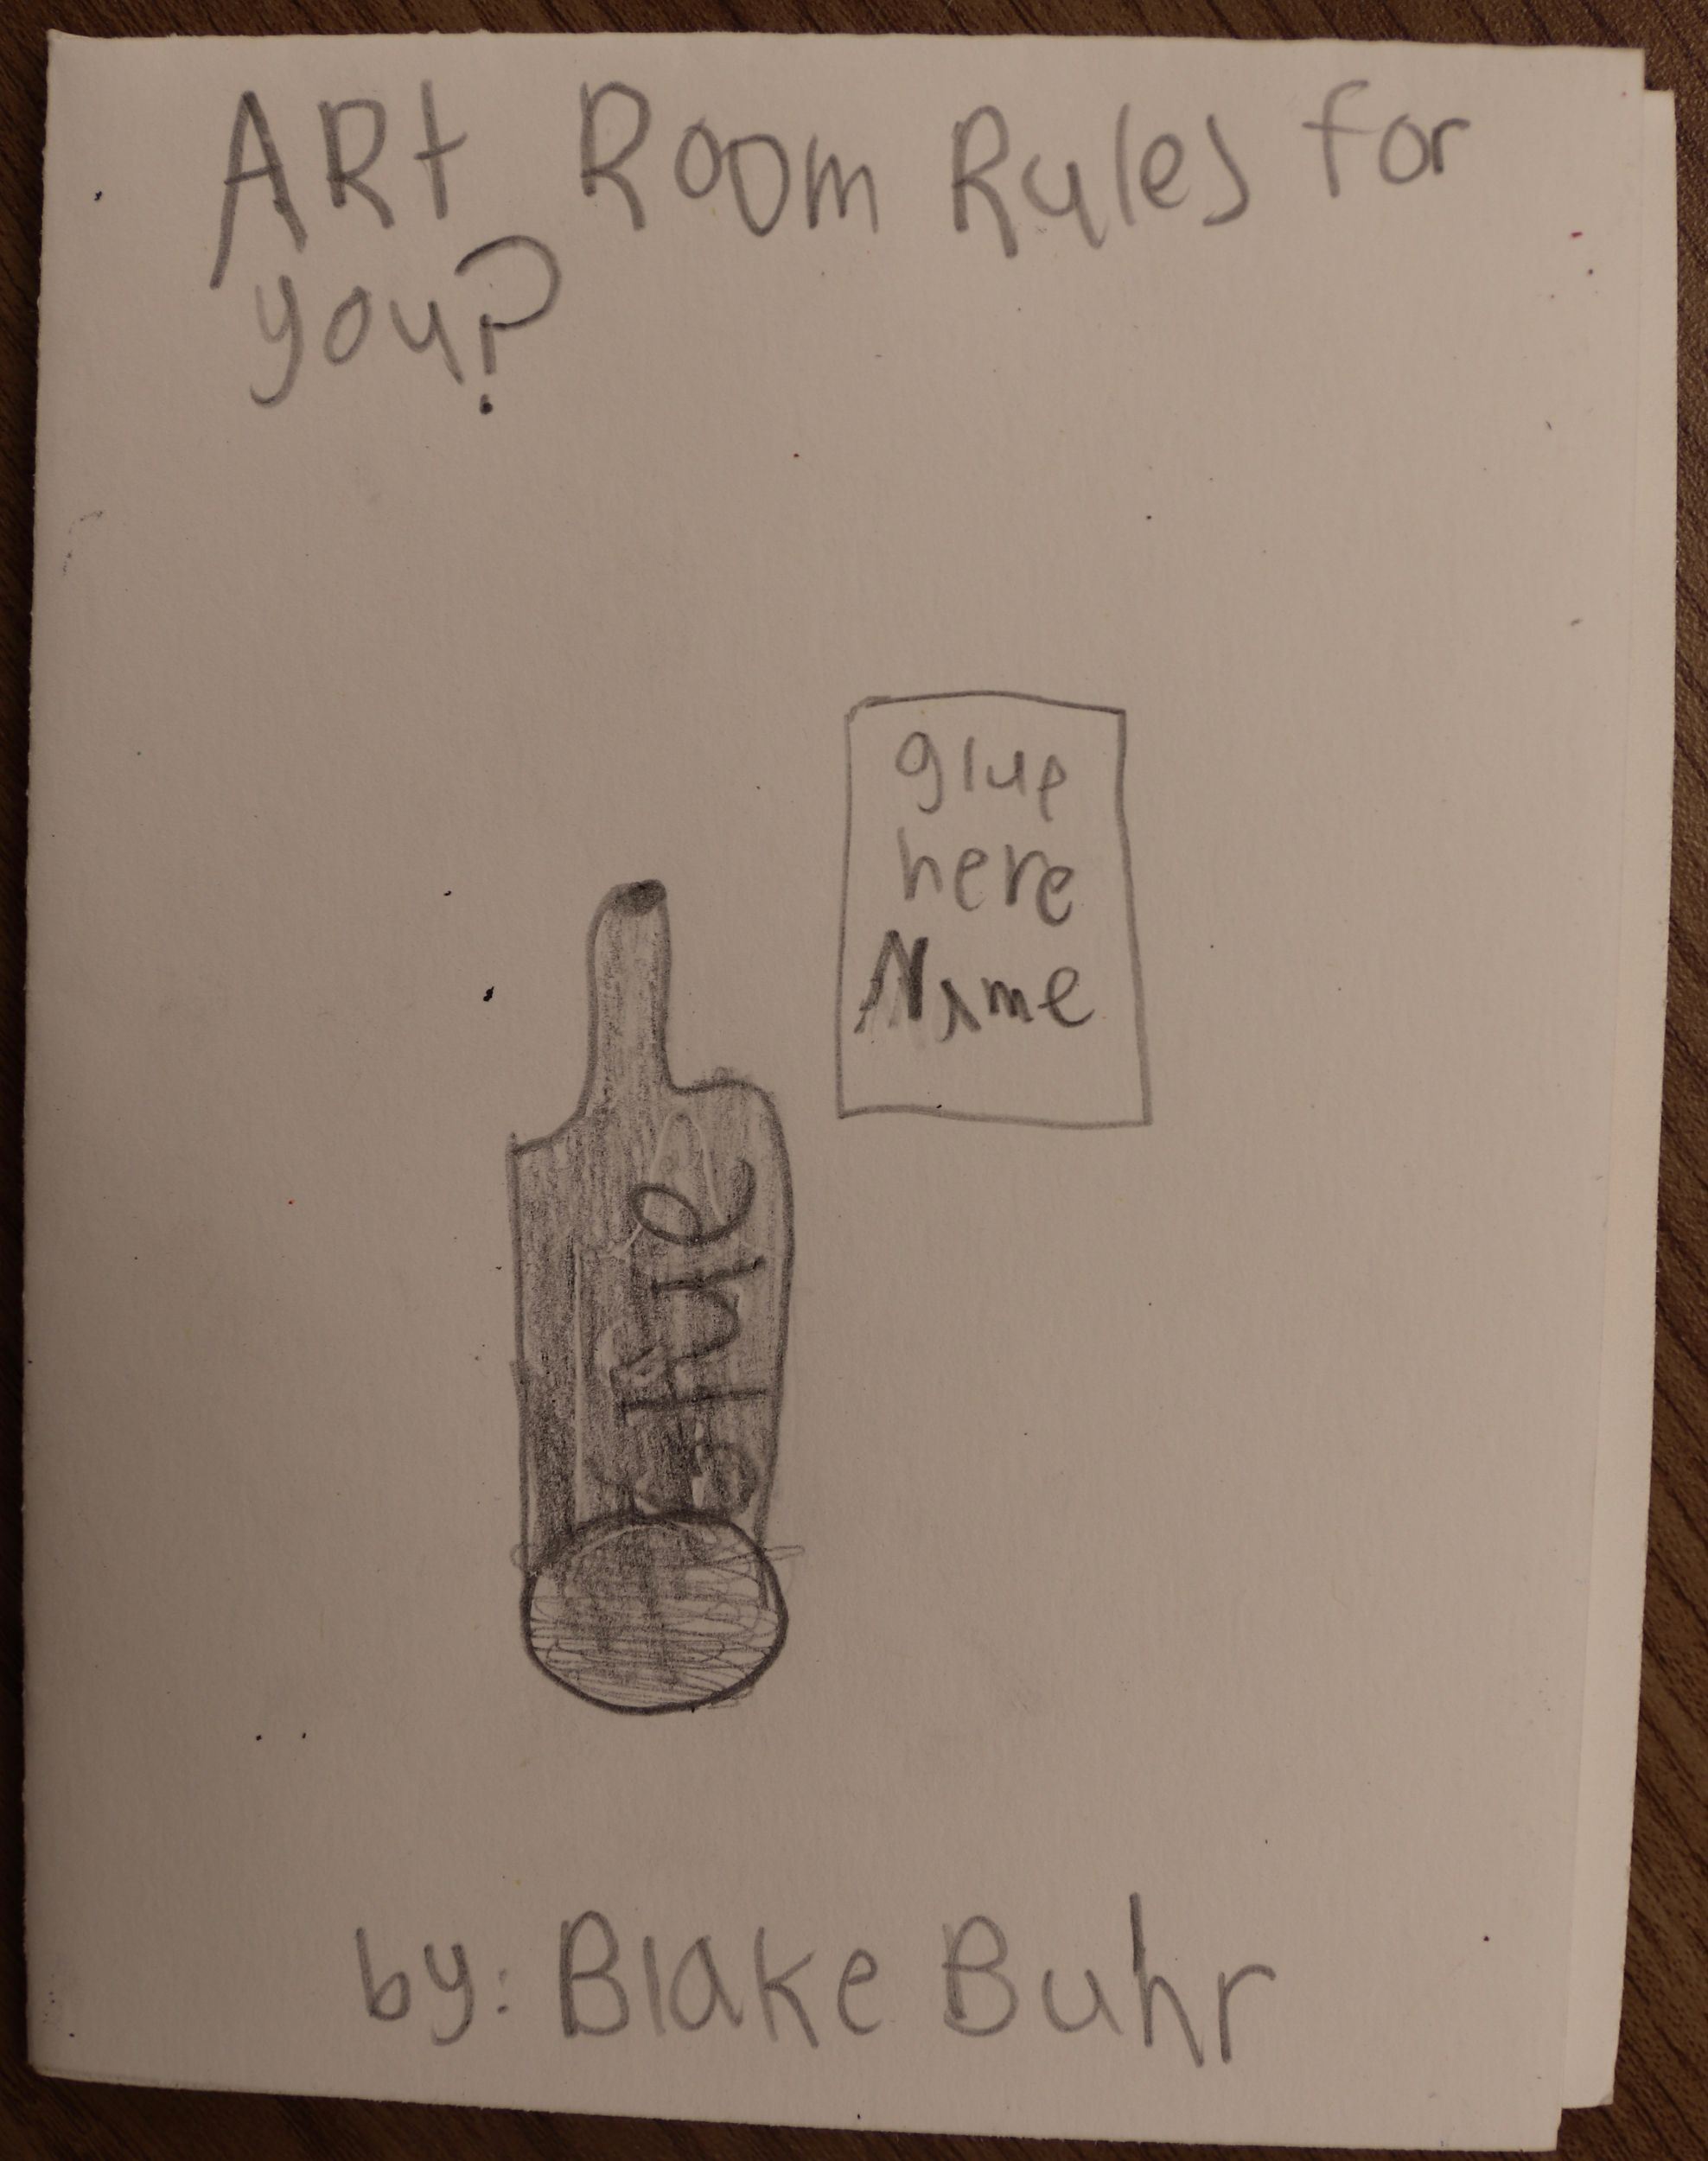 ARt Room Rules for
you?
glue
here
Name
glue
by: Blake Buhr